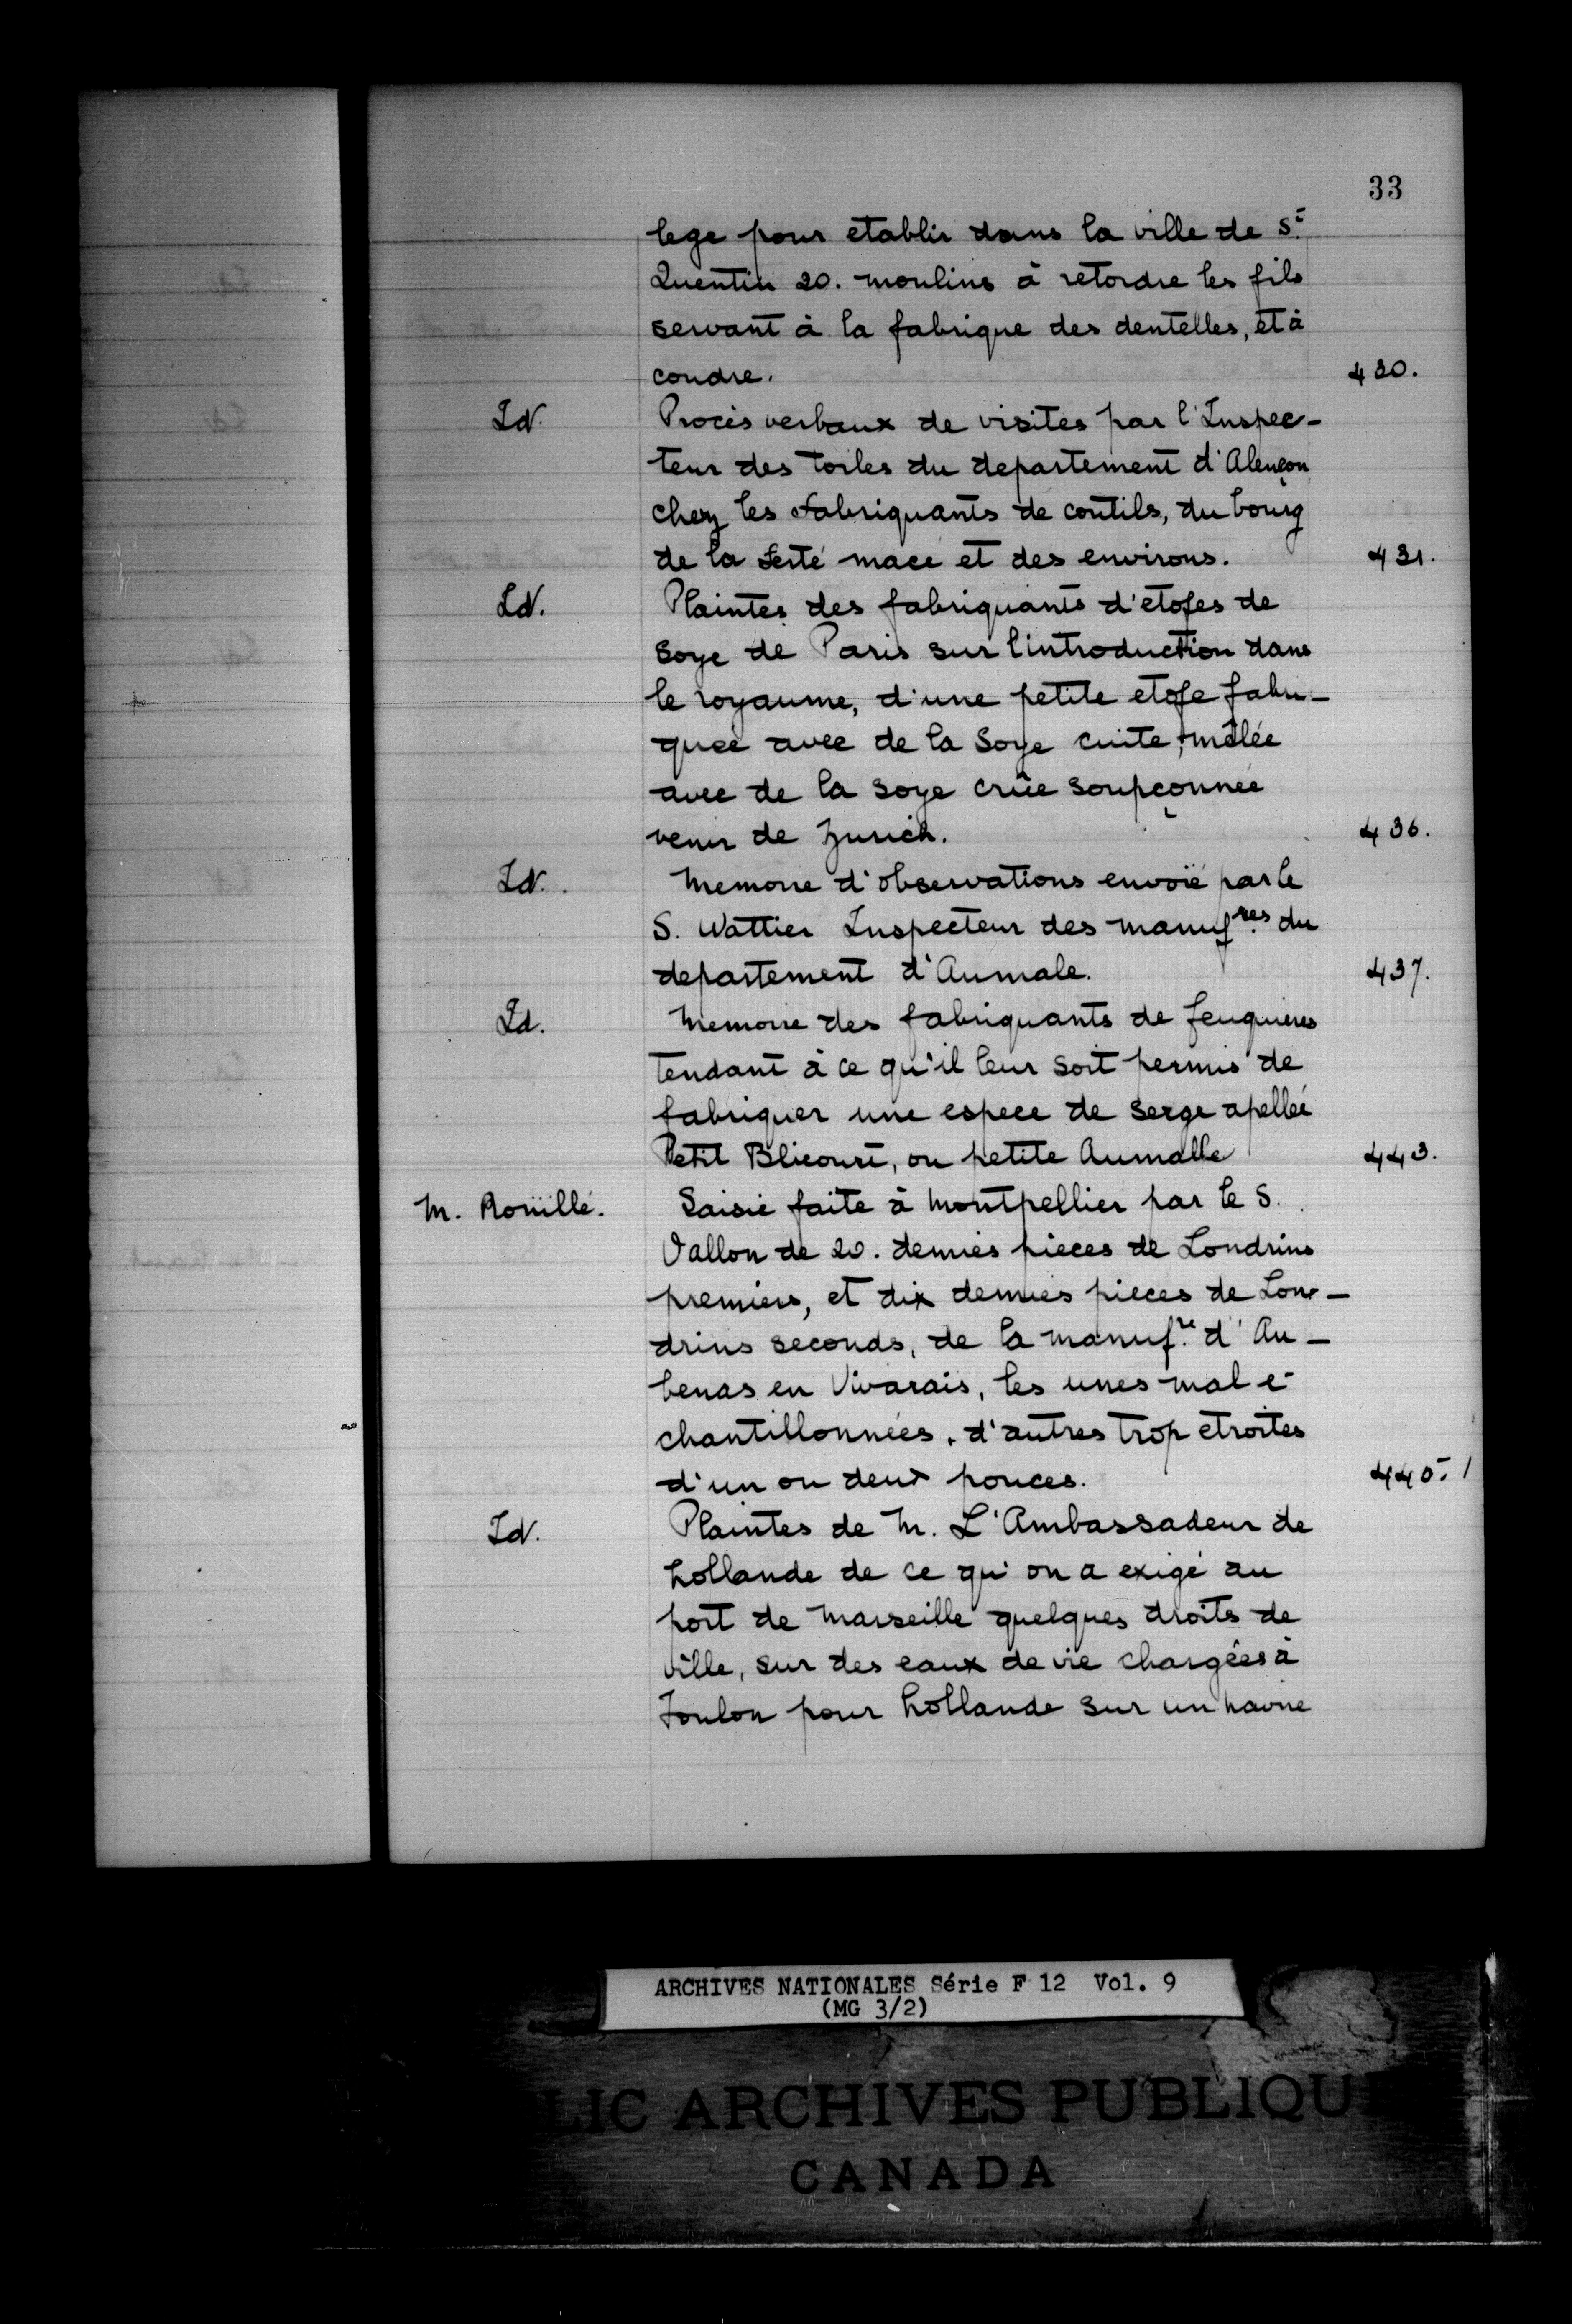 33
lege pour etablir dans la ville de S.t
Quentin 20. moulins à retordre les fils
servant à la fabrique des dentelles, et à
coudre. 430.
Id. Procès verbaux de visites par l'Inspec-
teur des toiles du departement d'Alençon
chez les fabriquants de coutils, du bourg
de la ferté macé et des environs. 431.
Id. Plaintes des fabriquants d'etofes de
soye de Paris sur l'introduction dans
le royaume, d'une petite etofe fabri-
quée avec de la soye cuite, mêlée
avec de la soye crüe soupçonnée
venir de Zurich. 436.
Id. Memoire d'observations envoïé par le
S. Wattier Inspecteur des manuf.res du
departement d'Aumale. 437.
Id. Memoire des fabriquants de feuquieres
tendant à ce qu'il leur soit permis de
fabriquer une espece de serge apellée
Petit Blicourt, ou petite Aumalle 443.
M. Roüillé. Saisie faite à Montpellier par le S.
Vallon de 20. demies pieces de Londrins
premiers, et dix demies pieces de Lon-
drins seconds, de la manuf.re d'Au-
benas en Vivarais, les unes mal é-
chantillonnées, d'autres trop etroites
d'un ou deux pouces. 445.
Id. Plaintes de M. L'Ambassadeur de
hollande de ce qu'on a exigé au
port de Marseille quelques droits de
ville, sur des eaux de vie chargées à
Toulon pour hollande sur un navire
ARCHIVES NATIONALES Série F 12 Vol. 9
(MG 3/2)
LIC ARCHIVES PUBLIQU
CANADA